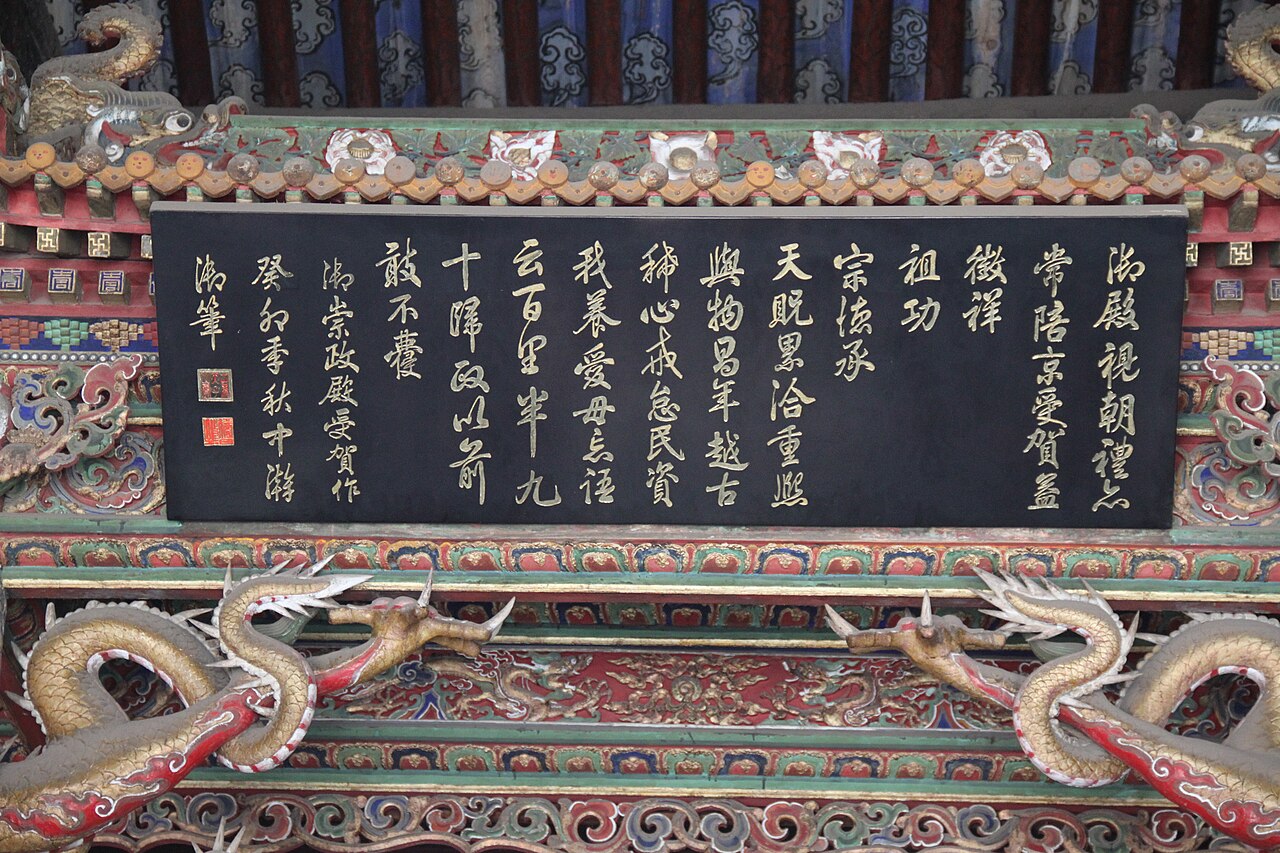 御殿視朝禮亦
常陪京受賀益
徵祥
祖功
宗德承
天貺累洽重熙
與物昌年越古
稀心戒怠民資
我養愛毋忘語
云百里半九
十歸政以前
敢不蘉
御崇政殿受賀作
癸卯季秋中澣
御筆